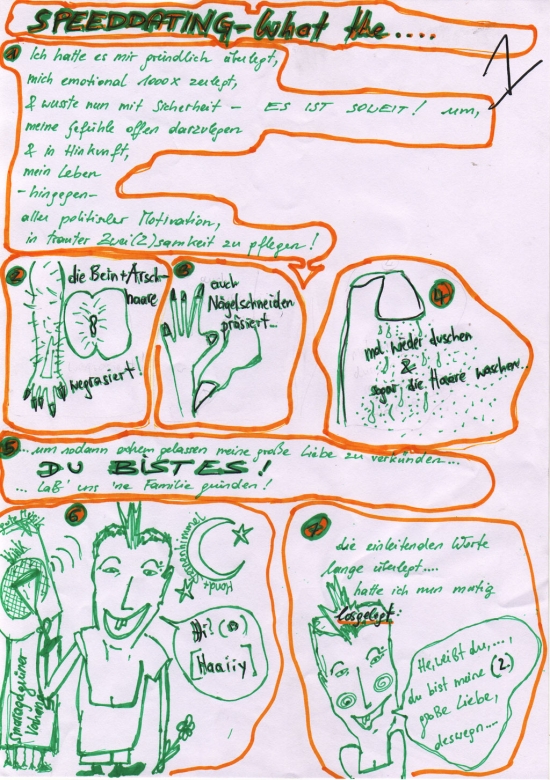 SPEEDDATING - What the.....
1
1 Ich hatte es mir gründlich überlegt,
mich emotional 1000x zerlegt,
& wusste nun mit Sicherheit - ES IST SOWEIT! um,
meine Gefühle offen darzulegen
& in Hinkunft,
mein Leben
- hingegen -
aller politischer Motivation,
in trauter Zwei(2)samkeit zu pflegen!
2
die Bein+Arsch-
haare
wegrasiert!
3
auch
Nägelschneiden
präsiert...
4
mal wieder duschen
&
sogar die Haare waschen..
5
...um sodann extrem gelassen meine große Liebe zu verkünden...
DU BIST ES!
... Laß' uns 'ne Familie gründen!
6
Smaragdgrüner
Vorhang
Sternenhimmel
Mond+
Hi! (☺)
[Haaiiy]
7
die einleitenden Worte
lange überlegt....
hatte ich nun mutig
losgelegt:
He, weißt du,....,
du bist meine (2.)
große Liebe,
deswegn....